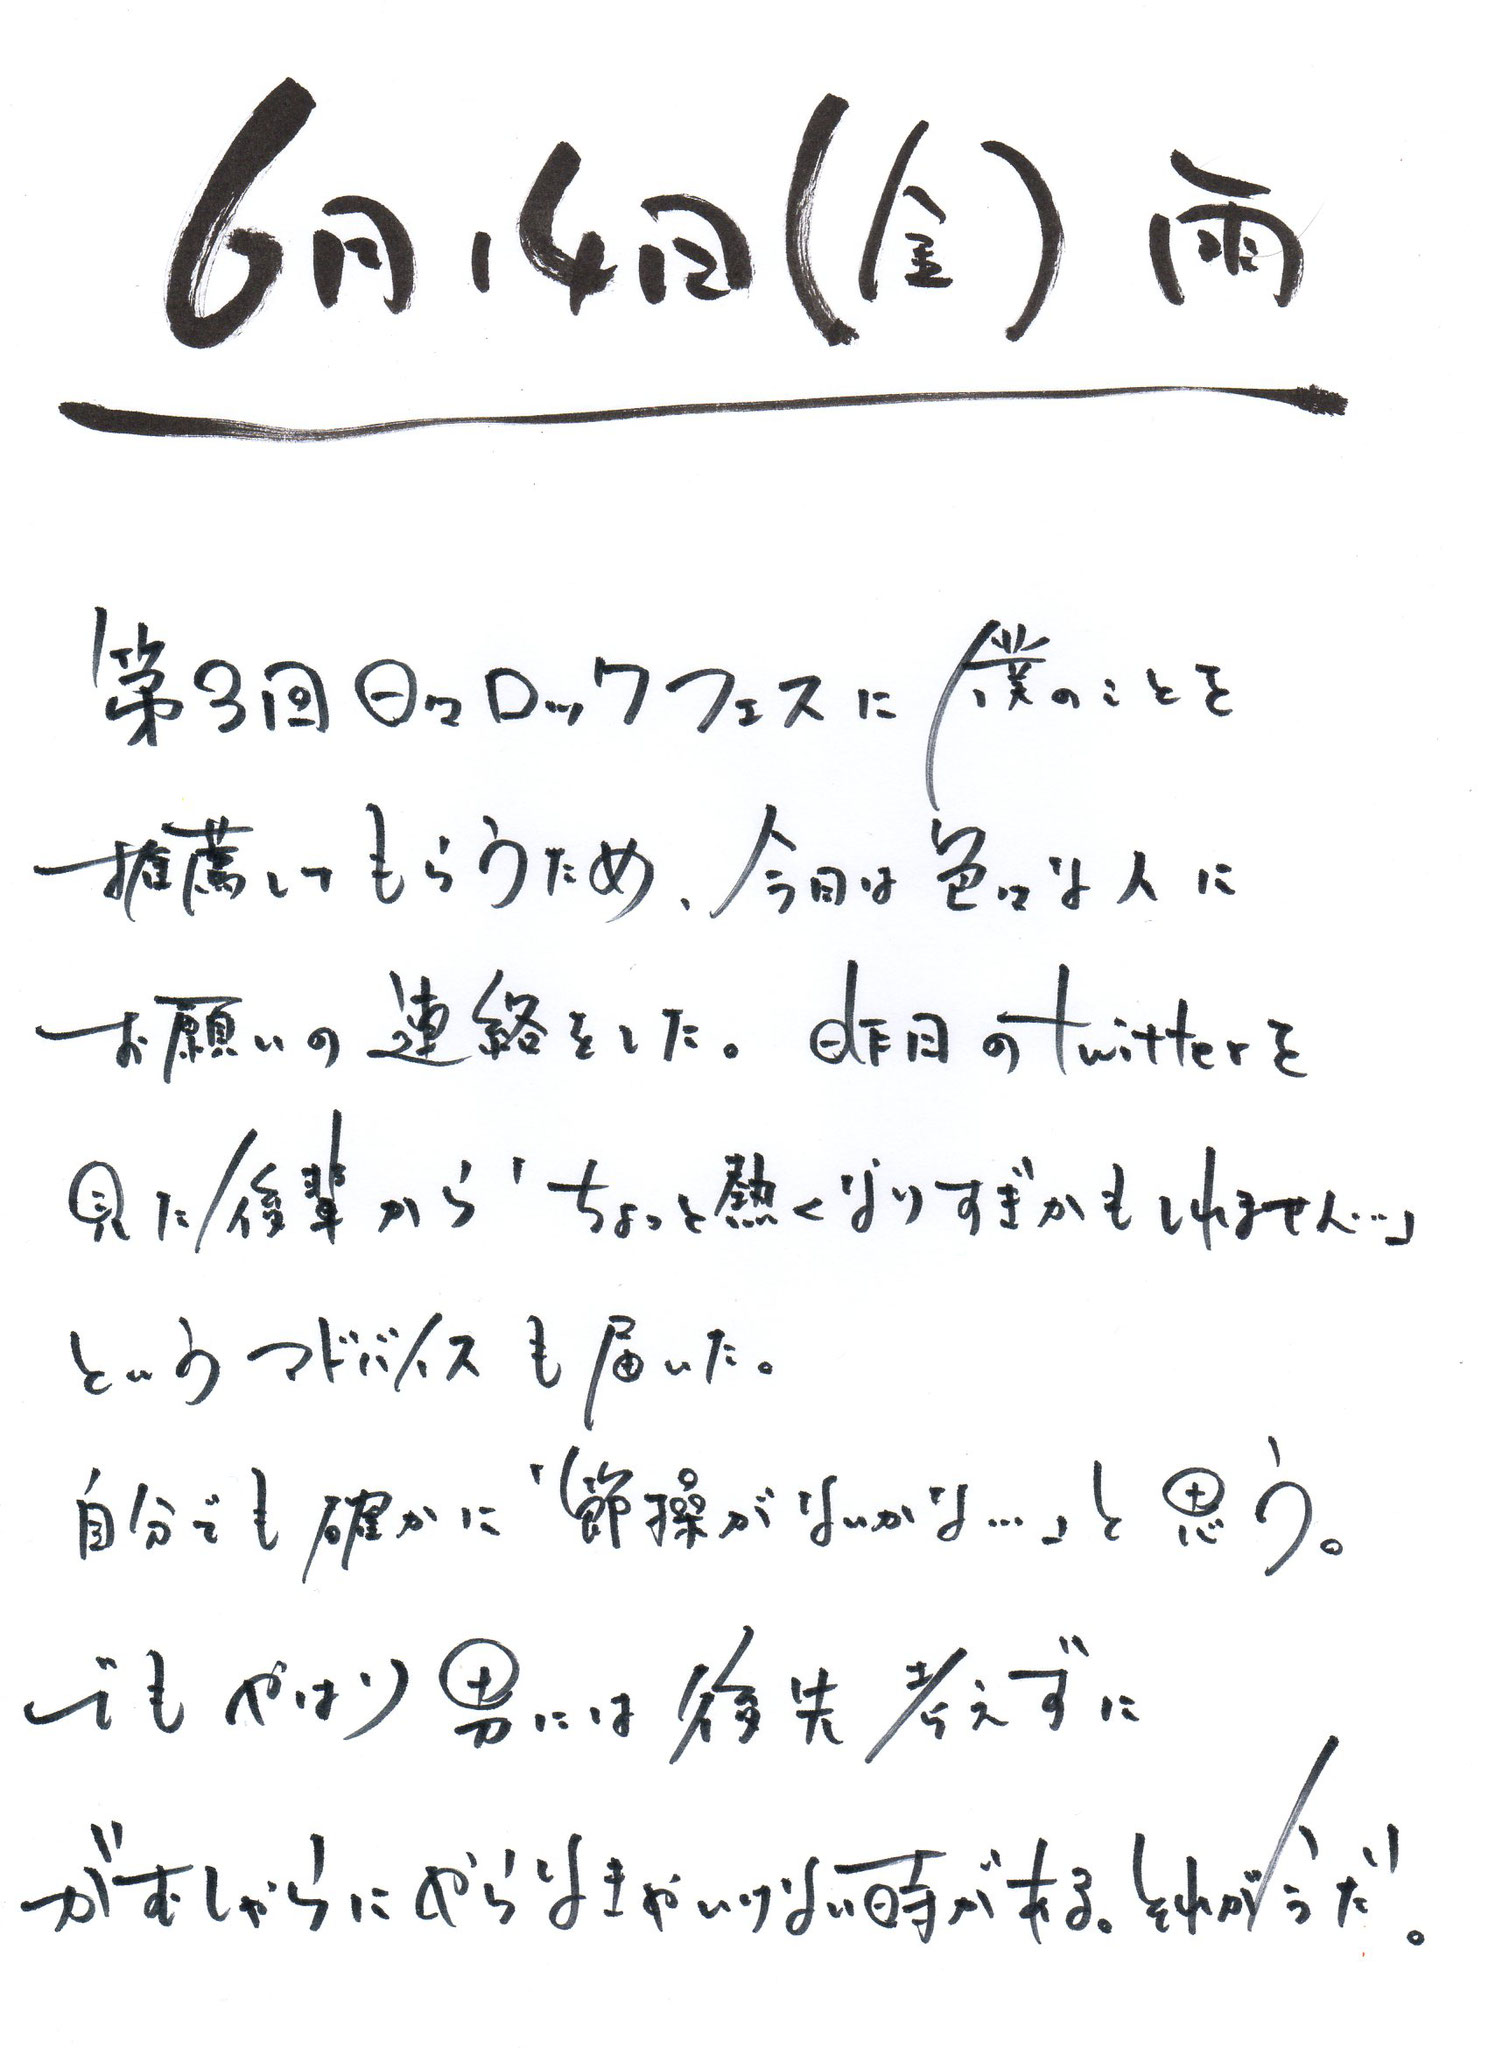 6月14日(金) 雨
第3回日々ロックフェスに僕のことを
推薦してもらうため、今日は色々な人に
お願いの連絡をした。昨日のtwitterを
見た後輩から「ちょっと熱くなりすぎかもしれません…」
というアドバイスも届いた。
自分でも確かに「節操がないかな…」と思う。
でもやはり男には後先考えずに
がむしゃらにやらなきゃいけない時がある。それが今だ。